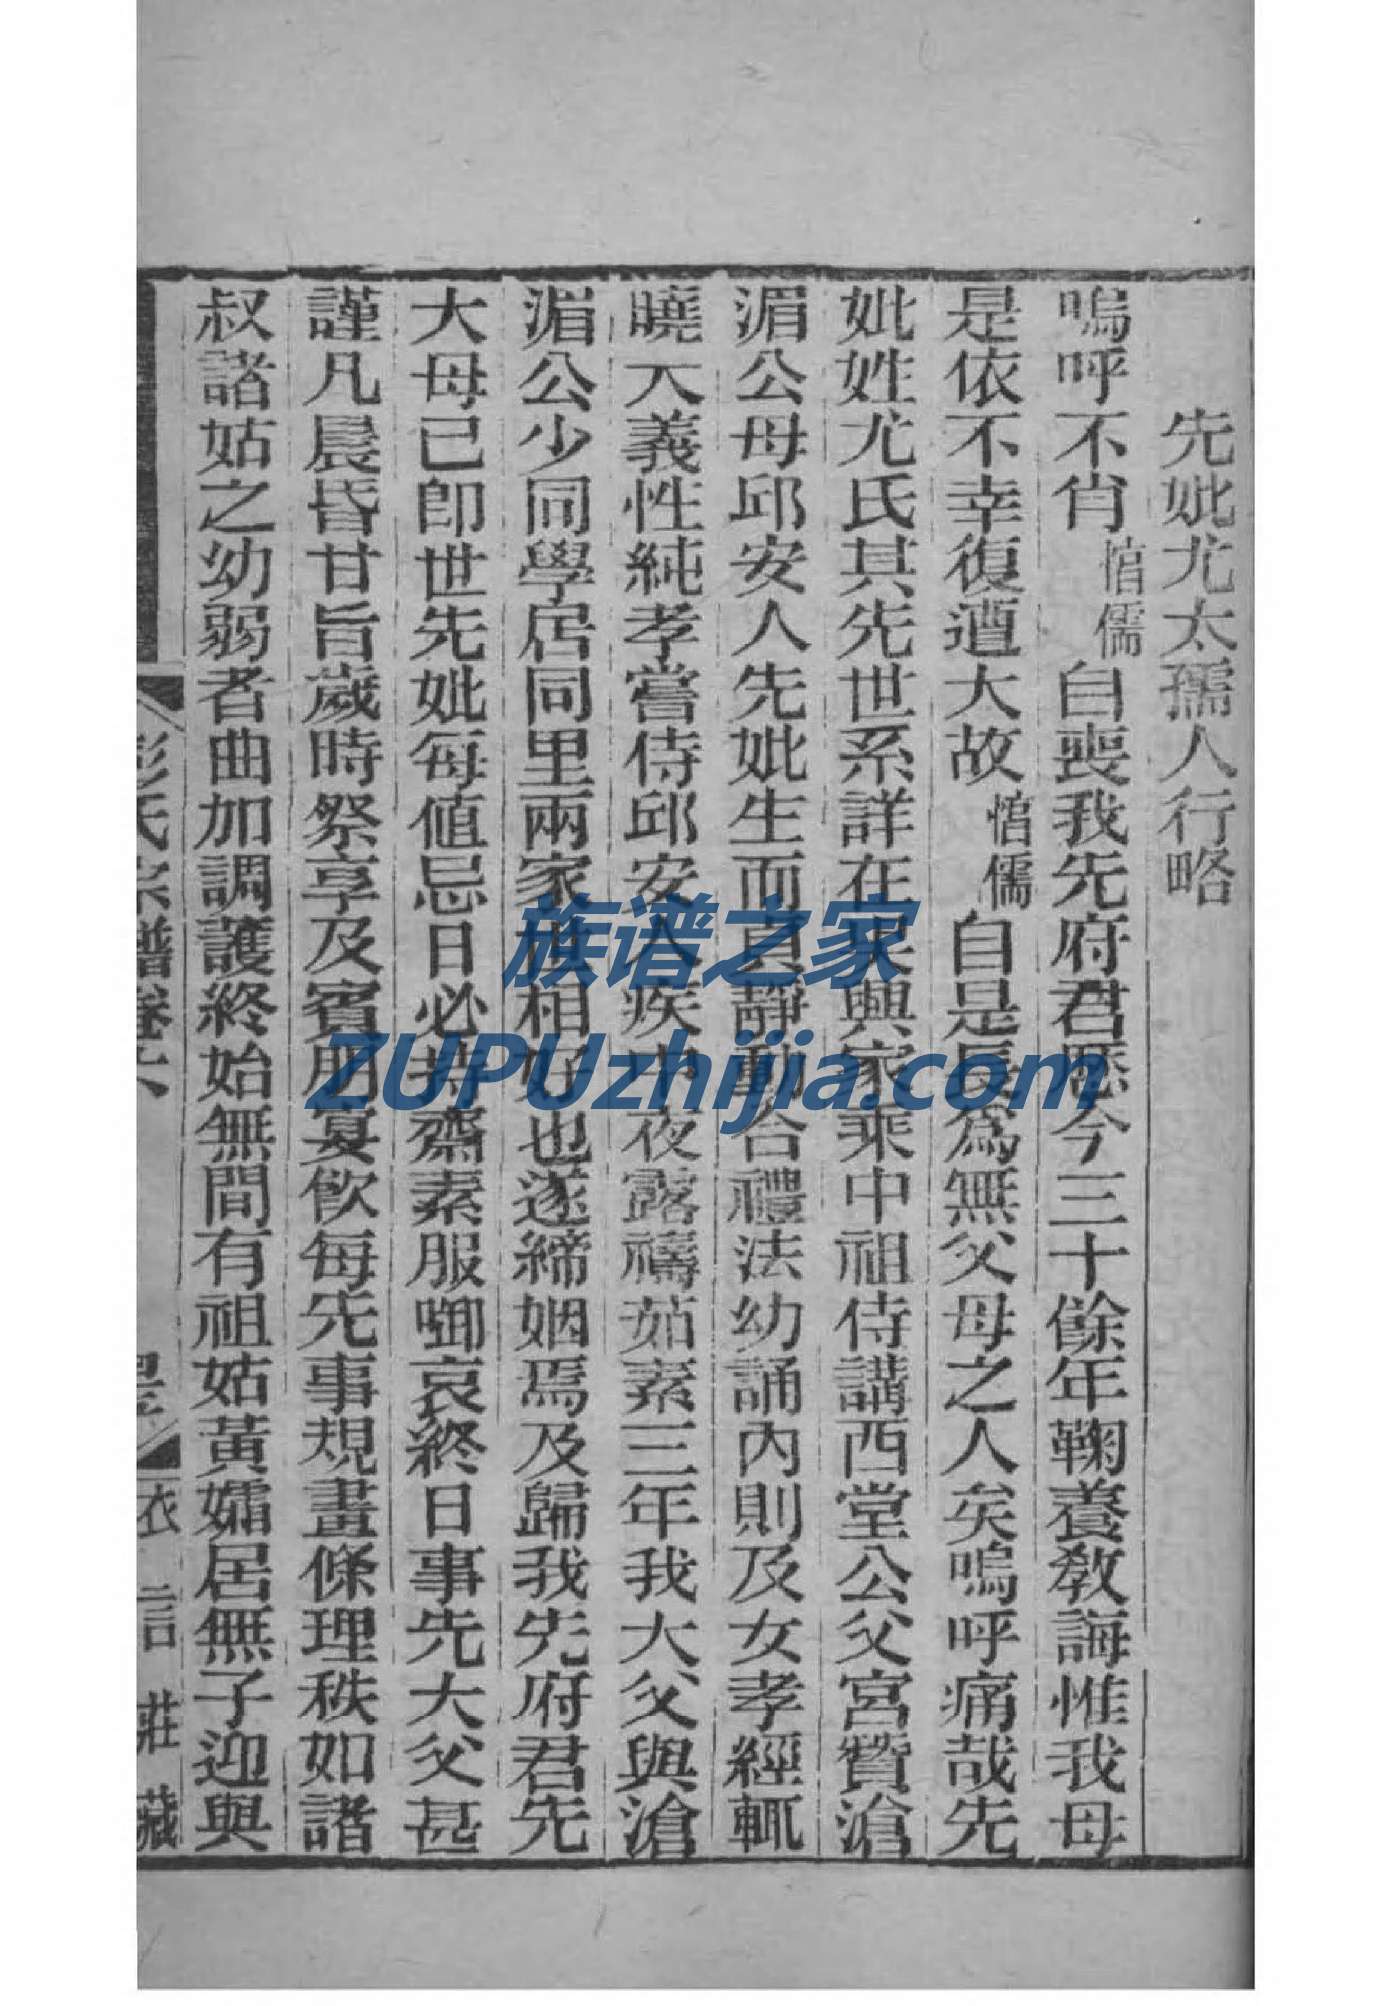 先妣尤太孺人行略
嗚呼不肖愔儒自喪我先府君歷今三十餘年鞠養敎誨惟我母
是依不幸復遭大故愔儒自是長爲無父母之人矣嗚呼痛哉先
妣姓尤氏其先世系詳在吳興家乘中祖侍講西堂公父宮贊滄
湄公母邱安人先妣生而貞靜動合禮法幼誦內則及女孝經輒
曉大義性純孝嘗侍邱安人疾中夜露禱茹素三年我大父與滄
湄公少同學居同里兩家世相好也遂締姻焉及歸我先府君先
大母已卽世先妣每值忌日必持齋素服啣哀終日事先大父甚
謹凡晨昏甘旨歲時祭享及賓朋宴飮每先事規畫條理秩如諸
叔諸姑之幼弱者曲加調護終始無間有祖姑黃孀居無子迎與
彭氏宗譜卷六
衣言莊藏
族谱之家
ZUPUzhijia.com